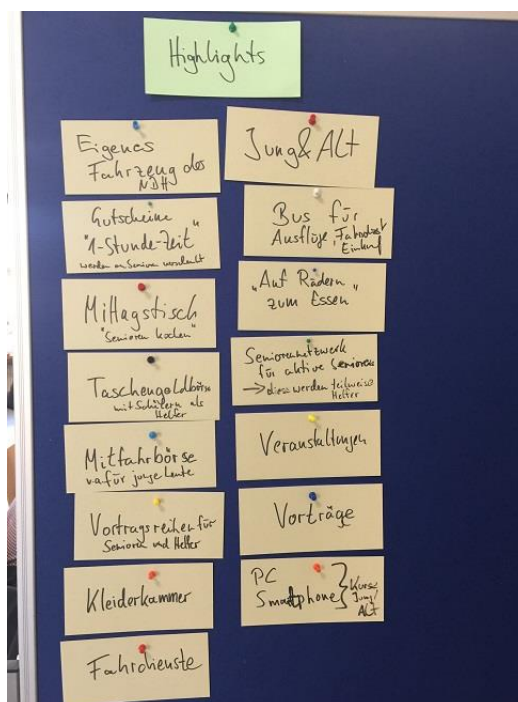 Highlights
Eigenes
Fahrzeug des
NDH
Gutscheine
"1-Stunde-Zeit"
werden an Senioren verschenkt
Mittagstisch
"Senioren kochen"
Taschengeldbörse
mit Schülern als
Helfer
Mitfahrbörse
v.a. für junge Leute
Vortragsreihen für
Senioren und Helfer
Kleiderkammer
Fahrdienste
Jung & Alt
Bus für
Ausflüge, Fahrdienst
Einkauf
"Auf Rädern"
zum Essen
Seniorennetzwerk
für aktive Senioren
→ diese werden teilweise
Helfer
Veranstaltungen
Vorträge
PC
Smartphone } Kurse
Jung/
Alt